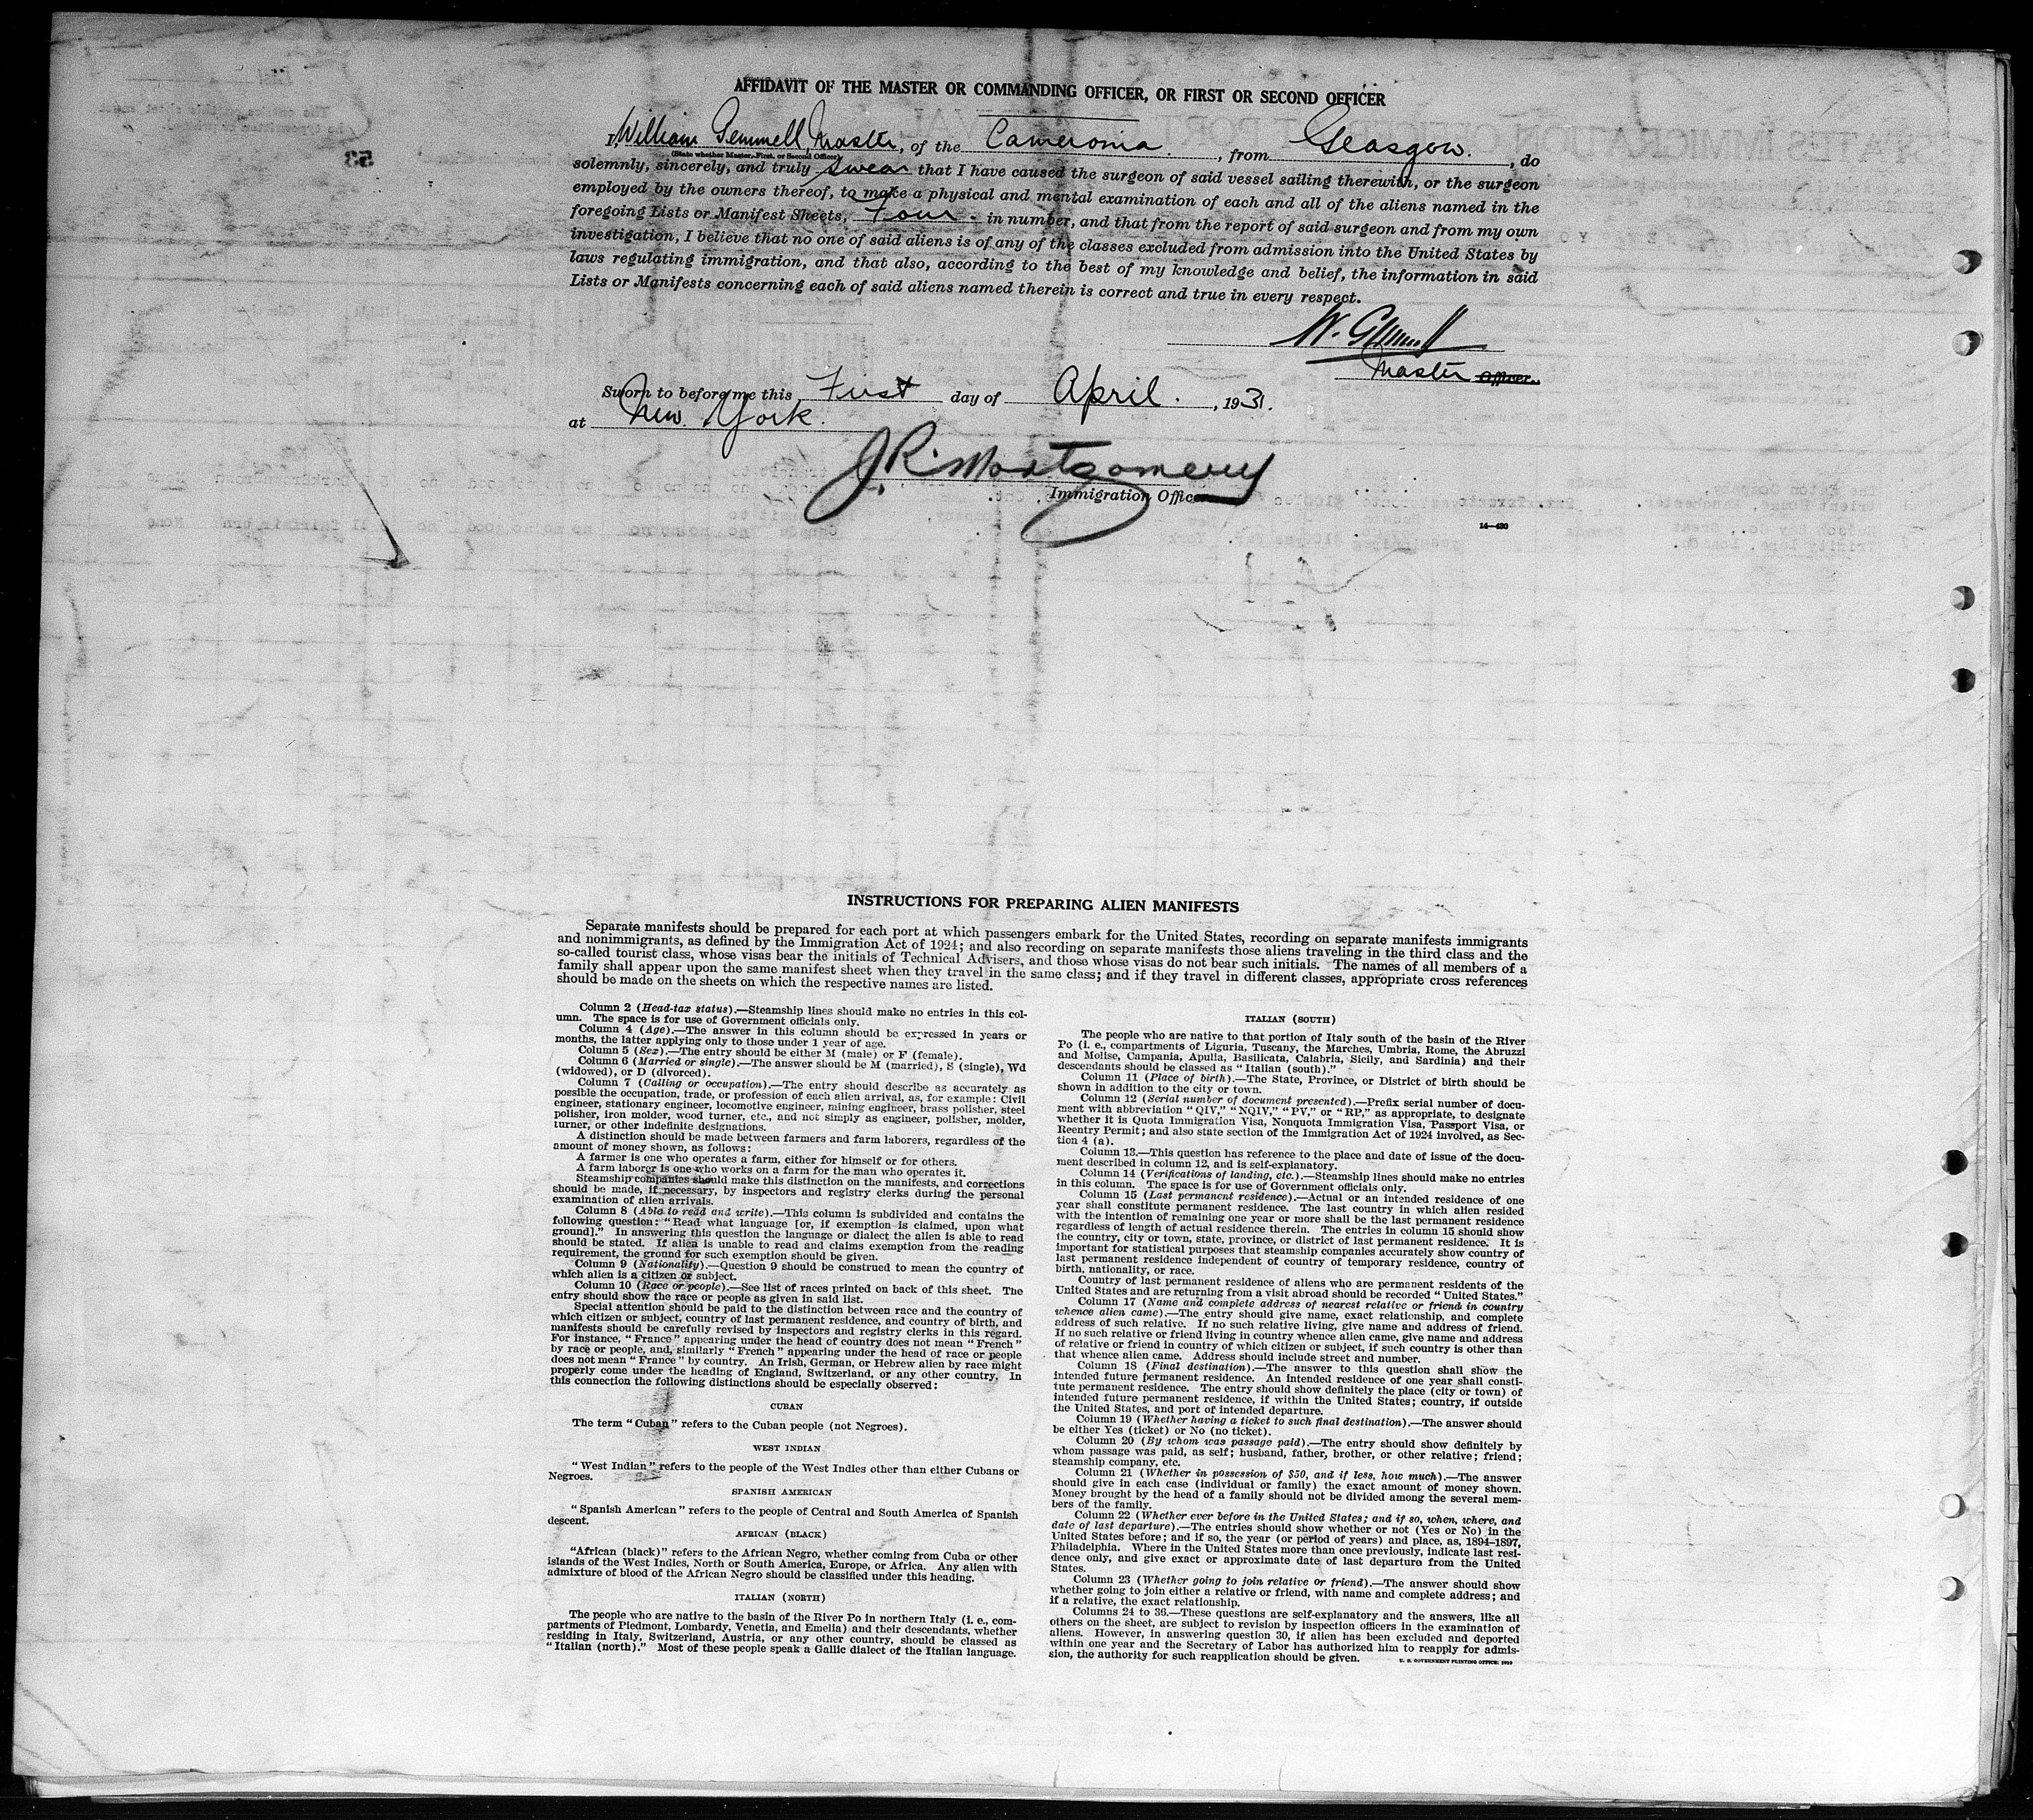 AFFIDAVIT OF THE MASTER OR COMMANDING OFFICER, OR FIRST OR SECOND OFFICER
I, William Gemmell, Master, of the Cameronia., from Glasgow., do
(State whether Master, First, or Second Officer)
solemnly, sincerely, and truly swear that I have caused the surgeon of said vessel sailing therewith, or the surgeon
employed by the owners thereof, to make a physical and mental examination of each and all of the aliens named in the
foregoing Lists or Manifest Sheets, Four. in number, and that from the report of said surgeon and from my own
investigation, I believe that no one of said aliens is of any of the classes excluded from admission into the United States by
laws regulating immigration, and that also, according to the best of my knowledge and belief, the information in said
Lists or Manifests concerning each of said aliens named therein is correct and true in every respect.
W. Gemmell
Master Officer.
Sworn to before me this First day of April., 1931.
at New York.
J. R. Montgomery
Immigration Officer.
14—430
INSTRUCTIONS FOR PREPARING ALIEN MANIFESTS
Separate manifests should be prepared for each port at which passengers embark for the United States, recording on separate manifests immigrants
and nonimmigrants, as defined by the Immigration Act of 1924; and also recording on separate manifests those aliens traveling in the third class and the
so-called tourist class, whose visas bear the initials of Technical Advisers, and those whose visas do not bear such initials. The names of all members of a
family shall appear upon the same manifest sheet when they travel in the same class; and if they travel in different classes, appropriate cross references
should be made on the sheets on which the respective names are listed.
Column 2 (Head-tax status).—Steamship lines should make no entries in this col-
umn. The space is for use of Government officials only.
Column 4 (Age).—The answer in this column should be expressed in years or
months, the latter applying only to those under 1 year of age.
Column 5 (Sex).—The entry should be either M (male) or F (female).
Column 6 (Married or single).—The answer should be M (married), S (single), Wd
(widowed), or D (divorced).
Column 7 (Calling or occupation).—The entry should describe as accurately as
possible the occupation, trade, or profession of each alien arrival, as, for example: Civil
engineer, stationary engineer, locomotive engineer, mining engineer, brass polisher, steel
polisher, iron molder, wood turner, etc., and not simply as engineer, polisher, molder,
turner, or other indefinite designations.
A distinction should be made between farmers and farm laborers, regardless of the
amount of money shown, as follows:
A farmer is one who operates a farm, either for himself or for others.
A farm laborer is one who works on a farm for the man who operates it.
Steamship companies should make this distinction on the manifests, and corrections
should be made, if necessary, by inspectors and registry clerks during the personal
examination of alien arrivals.
Column 8 (Able to read and write).—This column is subdivided and contains the
following question: "Read what language [or, if exemption is claimed, upon what
ground]." In answering this question the language or dialect the alien is able to read
should be stated. If alien is unable to read and claims exemption from the reading
requirement, the ground for such exemption should be given.
Column 9 (Nationality).—Question 9 should be construed to mean the country of
which alien is a citizen or subject.
Column 10 (Race or people).—See list of races printed on back of this sheet. The
entry should show the race or people as given in said list.
Special attention should be paid to the distinction between race and the country of
which citizen or subject, country of last permanent residence, and country of birth, and
manifests should be carefully revised by inspectors and registry clerks in this regard.
For instance, "France" appearing under the head of country does not mean "French"
by race or people, and, similarly "French" appearing under the head of race or people
does not mean "France" by country. An Irish, German, or Hebrew alien by race might
properly come under the heading of England, Switzerland, or any other country. In
this connection the following distinctions should be especially observed:
CUBAN
The term "Cuban" refers to the Cuban people (not Negroes).
WEST INDIAN
"West Indian" refers to the people of the West Indies other than either Cubans or
Negroes.
SPANISH AMERICAN
"Spanish American" refers to the people of Central and South America of Spanish
descent.
AFRICAN (BLACK)
"African (black)" refers to the African Negro, whether coming from Cuba or other
islands of the West Indies, North or South America, Europe, or Africa. Any alien with
admixture of blood of the African Negro should be classified under this heading.
ITALIAN (NORTH)
The people who are native to the basin of the River Po in northern Italy (i. e., com-
partments of Piedmont, Lombardy, Venetia, and Emelia) and their descendants, whether
residing in Italy, Switzerland, Austria, or any other country, should be classed as
"Italian (north)." Most of these people speak a Gallic dialect of the Italian language.
ITALIAN (SOUTH)
The people who are native to that portion of Italy south of the basin of the River
Po (i. e., compartments of Liguria, Tuscany, the Marches, Umbria, Rome, the Abruzzi
and Molise, Campania, Apulia, Basilicata, Calabria, Sicily, and Sardinia) and their
descendants should be classed as "Italian (south)."
Column 11 (Place of birth).—The State, Province, or District of birth should be
shown in addition to the city or town.
Column 12 (Serial number of document presented).—Prefix serial number of docu-
ment with abbreviation "QIV," "NQIV," "PV," or "RP," as appropriate, to designate
whether it is Quota Immigration Visa, Nonquota Immigration Visa, Passport Visa, or
Reentry Permit; and also state section of the Immigration Act of 1924 involved, as Sec-
tion 4 (a).
Column 13.—This question has reference to the place and date of issue of the docu-
ment described in column 12, and is self-explanatory.
Column 14 (Verifications of landing, etc.).—Steamship lines should make no entries
in this column. The space is for use of Government officials only.
Column 15 (Last permanent residence).—Actual or an intended residence of one
year shall constitute permanent residence. The last country in which alien resided
with the intention of remaining one year or more shall be the last permanent residence
regardless of length of actual residence therein. The entries in column 15 should show
the country, city or town, state, province, or district of last permanent residence. It is
important for statistical purposes that steamship companies accurately show country of
last permanent residence independent of country of temporary residence, country of
birth, nationality, or race.
Country of last permanent residence of aliens who are permanent residents of the
United States and are returning from a visit abroad should be recorded "United States."
Column 17 (Name and complete address of nearest relative or friend in country
whence alien came).—The entry should give name, exact relationship, and complete
address of such relative. If no such relative living, give name and address of friend.
If no such relative or friend living in country whence alien came, give name and address
of relative or friend in country of which citizen or subject, if such country is other than
that whence alien came. Address should include street and number.
Column 18 (Final destination).—The answer to this question shall show the
intended future permanent residence. An intended residence of one year shall consti-
tute permanent residence. The entry should show definitely the place (city or town) of
intended future permanent residence, if within the United States; country, if outside
the United States, and port of intended departure.
Column 19 (Whether having a ticket to such final destination).—The answer should
be either Yes (ticket) or No (no ticket).
Column 20 (By whom was passage paid).—The entry should show definitely by
whom passage was paid, as self; husband, father, brother, or other relative; friend;
steamship company, etc.
Column 21 (Whether in possession of $50, and if less, how much).—The answer
should give in each case (individual or family) the exact amount of money shown.
Money brought by the head of a family should not be divided among the several mem-
bers of the family.
Column 22 (Whether ever before in the United States; and if so, when, where, and
date of last departure).—The entries should show whether or not (Yes or No) in the
United States before; and if so, the year (or period of years) and place, as, 1894–1897,
Philadelphia. Where in the United States more than once previously, indicate last resi-
dence only, and give exact or approximate date of last departure from the United
States.
Column 23 (Whether going to join relative or friend).—The answer should show
whether going to join either a relative or friend, with name and complete address; and
if a relative, the exact relationship.
Columns 24 to 36.—These questions are self-explanatory and the answers, like all
others on the sheet, are subject to revision by inspection officers in the examination of
aliens. However, in answering question 30, if alien has been excluded and deported
within one year and the Secretary of Labor has authorized him to reapply for admis-
sion, the authority for such reapplication should be given.
U. S. GOVERNMENT PRINTING OFFICE: 1929